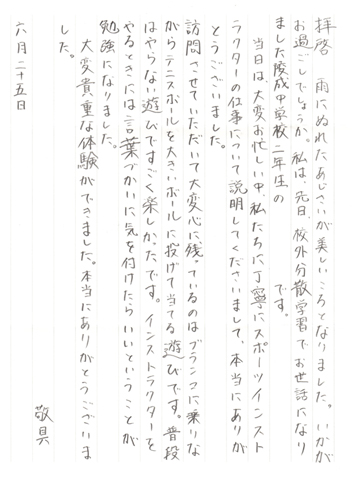 拝啓　雨にぬれたあじさいが美しいころとなりました。いかが
お過ごしでしょうか。私は先日、校外分散学習でお世話になり
ました陵成中学校二年生の　　　　　です。
当日は大変お忙しい中、私たちに丁寧にスポーツインスト
ラクターの仕事について説明してくださいまして、本当にありが
とうございました。
訪問させていただいて大変心に残っているのはブランコに乗りな
がらテニスボールを大きいボールに投げて当てる遊びです。普段
はやらない遊びですごく楽しかったです。インストラクターを
やるときには言葉づかいに気を付けたらいいということが
勉強になりました。
大変貴重な体験ができました。本当にありがとうございま
した。
敬具
六月二十五日